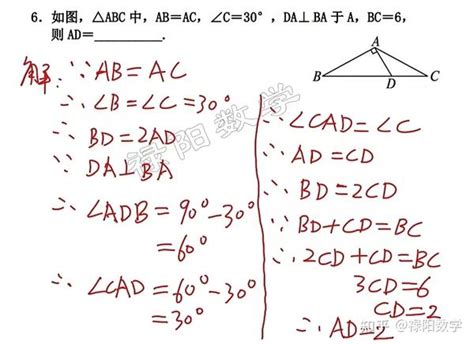 6. 如图，△ABC 中，AB=AC，∠C=30°，DA⊥BA 于 A，BC=6，
则 AD=________.
A
B
D
C
解: ∵AB=AC
∴∠B=∠C=30°
∴BD=2AD
∵DA⊥BA
∴∠ADB=90°-30°
=60°
∴∠CAD=60°-30°
=30°
∴∠CAD=∠C
∴AD=CD
∴BD=2CD
∵BD+CD=BC
∴2CD+CD=BC
3CD=6
CD=2
∴AD=2
禄阳数学
知乎 @禄阳数学